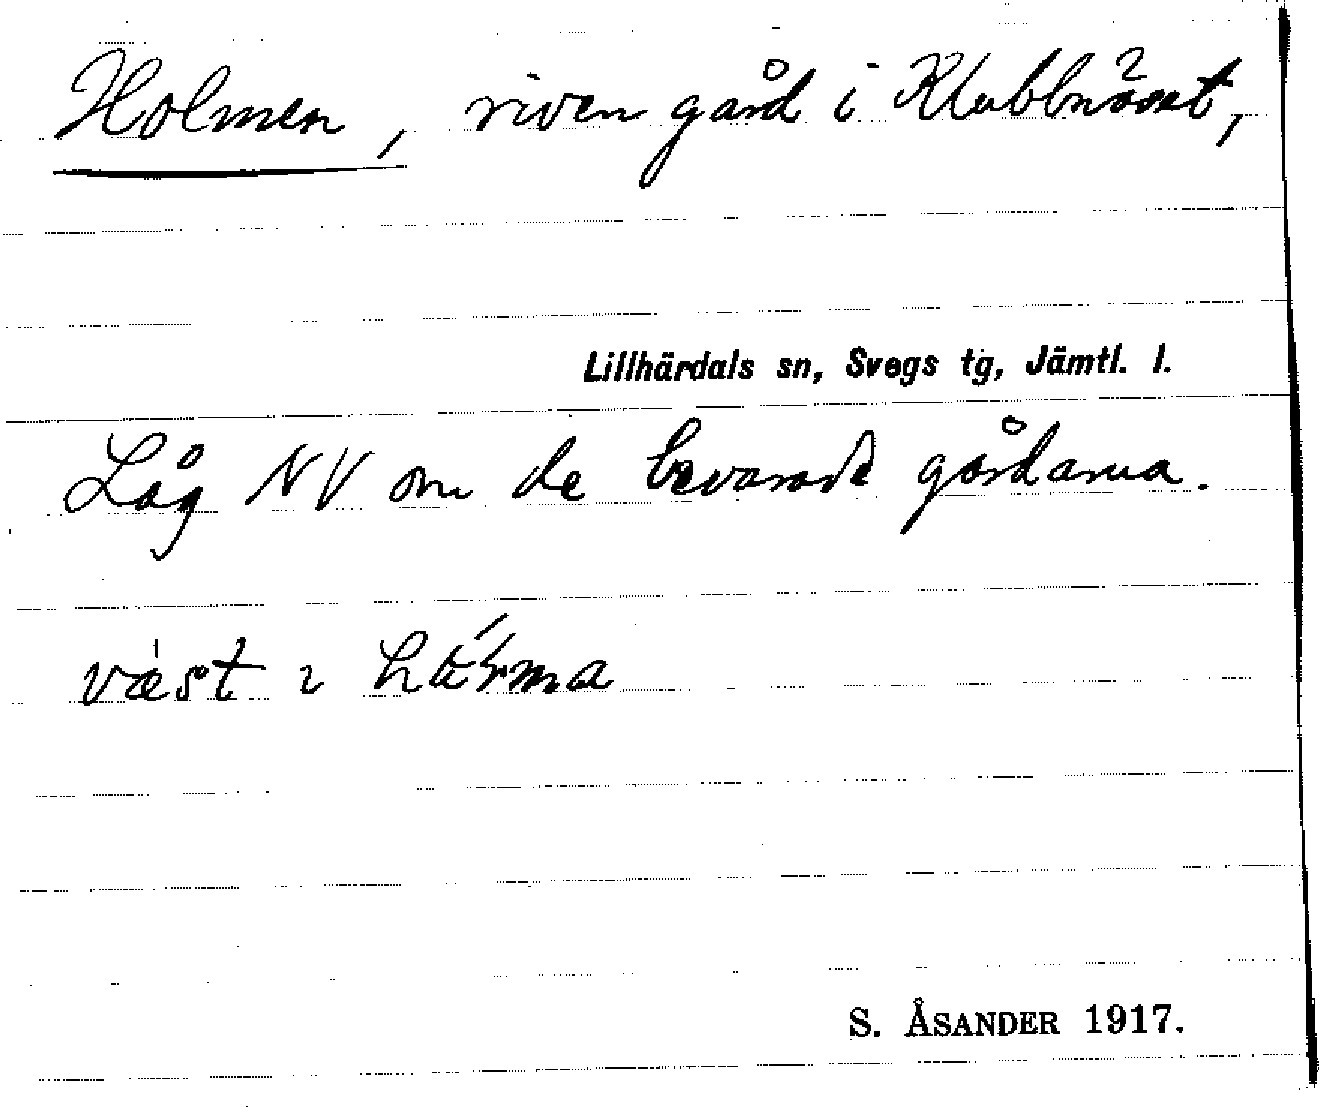 Holmen, riven gård i Klubbnäset,
Lillhärdals sn, Svegs tg, Jämtl. l.
Låg NV om de bevarade gårdarna.
væst i
S. ÅSANDER 1917.